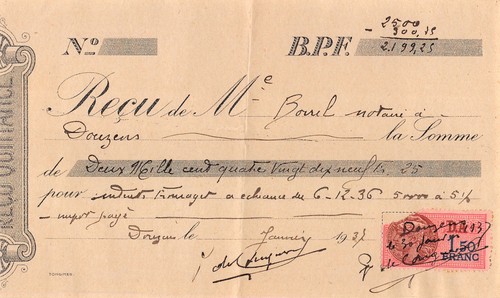 2500
- 300,75
No B.P.F. 2.199,25
REÇU QUITTANCE
Reçu de Me Borrel notaire à
Douzens la Somme
de Deux Mille cent quatre vingt dix neuf fs 25
pour intérêts échéance du 6-12-36 à 5%
impôt payé
Douzens le Janvier 1937
Douzens
le 30 Janvier 1937
1.50
FRANC